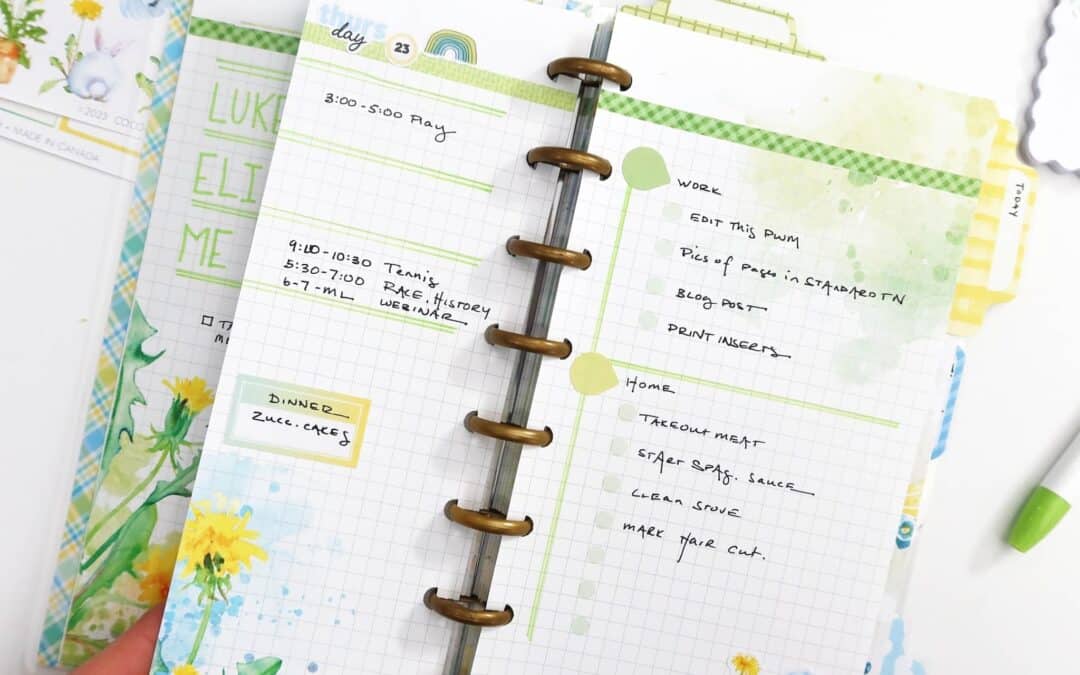 ©2023 COCO
• MADE IN CANADA
LUKE
ELI
ME
TA
ME
thurs
day
23
3:00-5:00 Play
10:30 Tennis
5:30-7:00 RACE. HISTORY
6-7-ML WEBINAR
DINNER
ZUCC. CAKES
TODAY
WORK
EDIT This PWM
Pics of Pages in STANDARD TN
BLOG POST
PRINT INSERTS
HOME
TAKEOUT MEAT
START SPAG. SAUCE
CLEAN STOVE
MARK HAIR CUT.